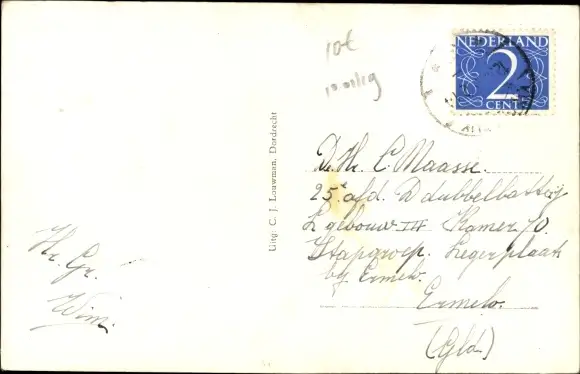 10t
NEDERLAND
2
CENT
Uitg: C. J. Louwman, Dordrecht
De Hr. C. Maasse.
25e afd. D dubbelbatterij
L gebouw III Kamer 70.
Stafgroep. Legerplaats
bij Ermelo.
Ermelo.
(Gld)
Hr. Gr.
Wim.